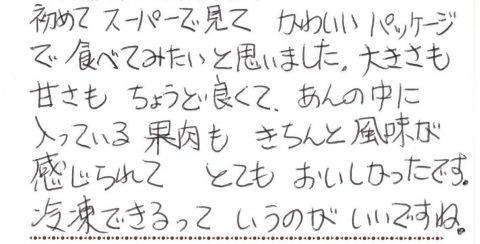 初めて スーパーで見て かわいい パッケージ
で 食べてみたいと思いました。大きさも
甘さも ちょうど良くて、あんの中に
入っている 果肉も きちんと 風味が
感じられて とても おいしかったです。
冷凍できるって いうのが いいですね。